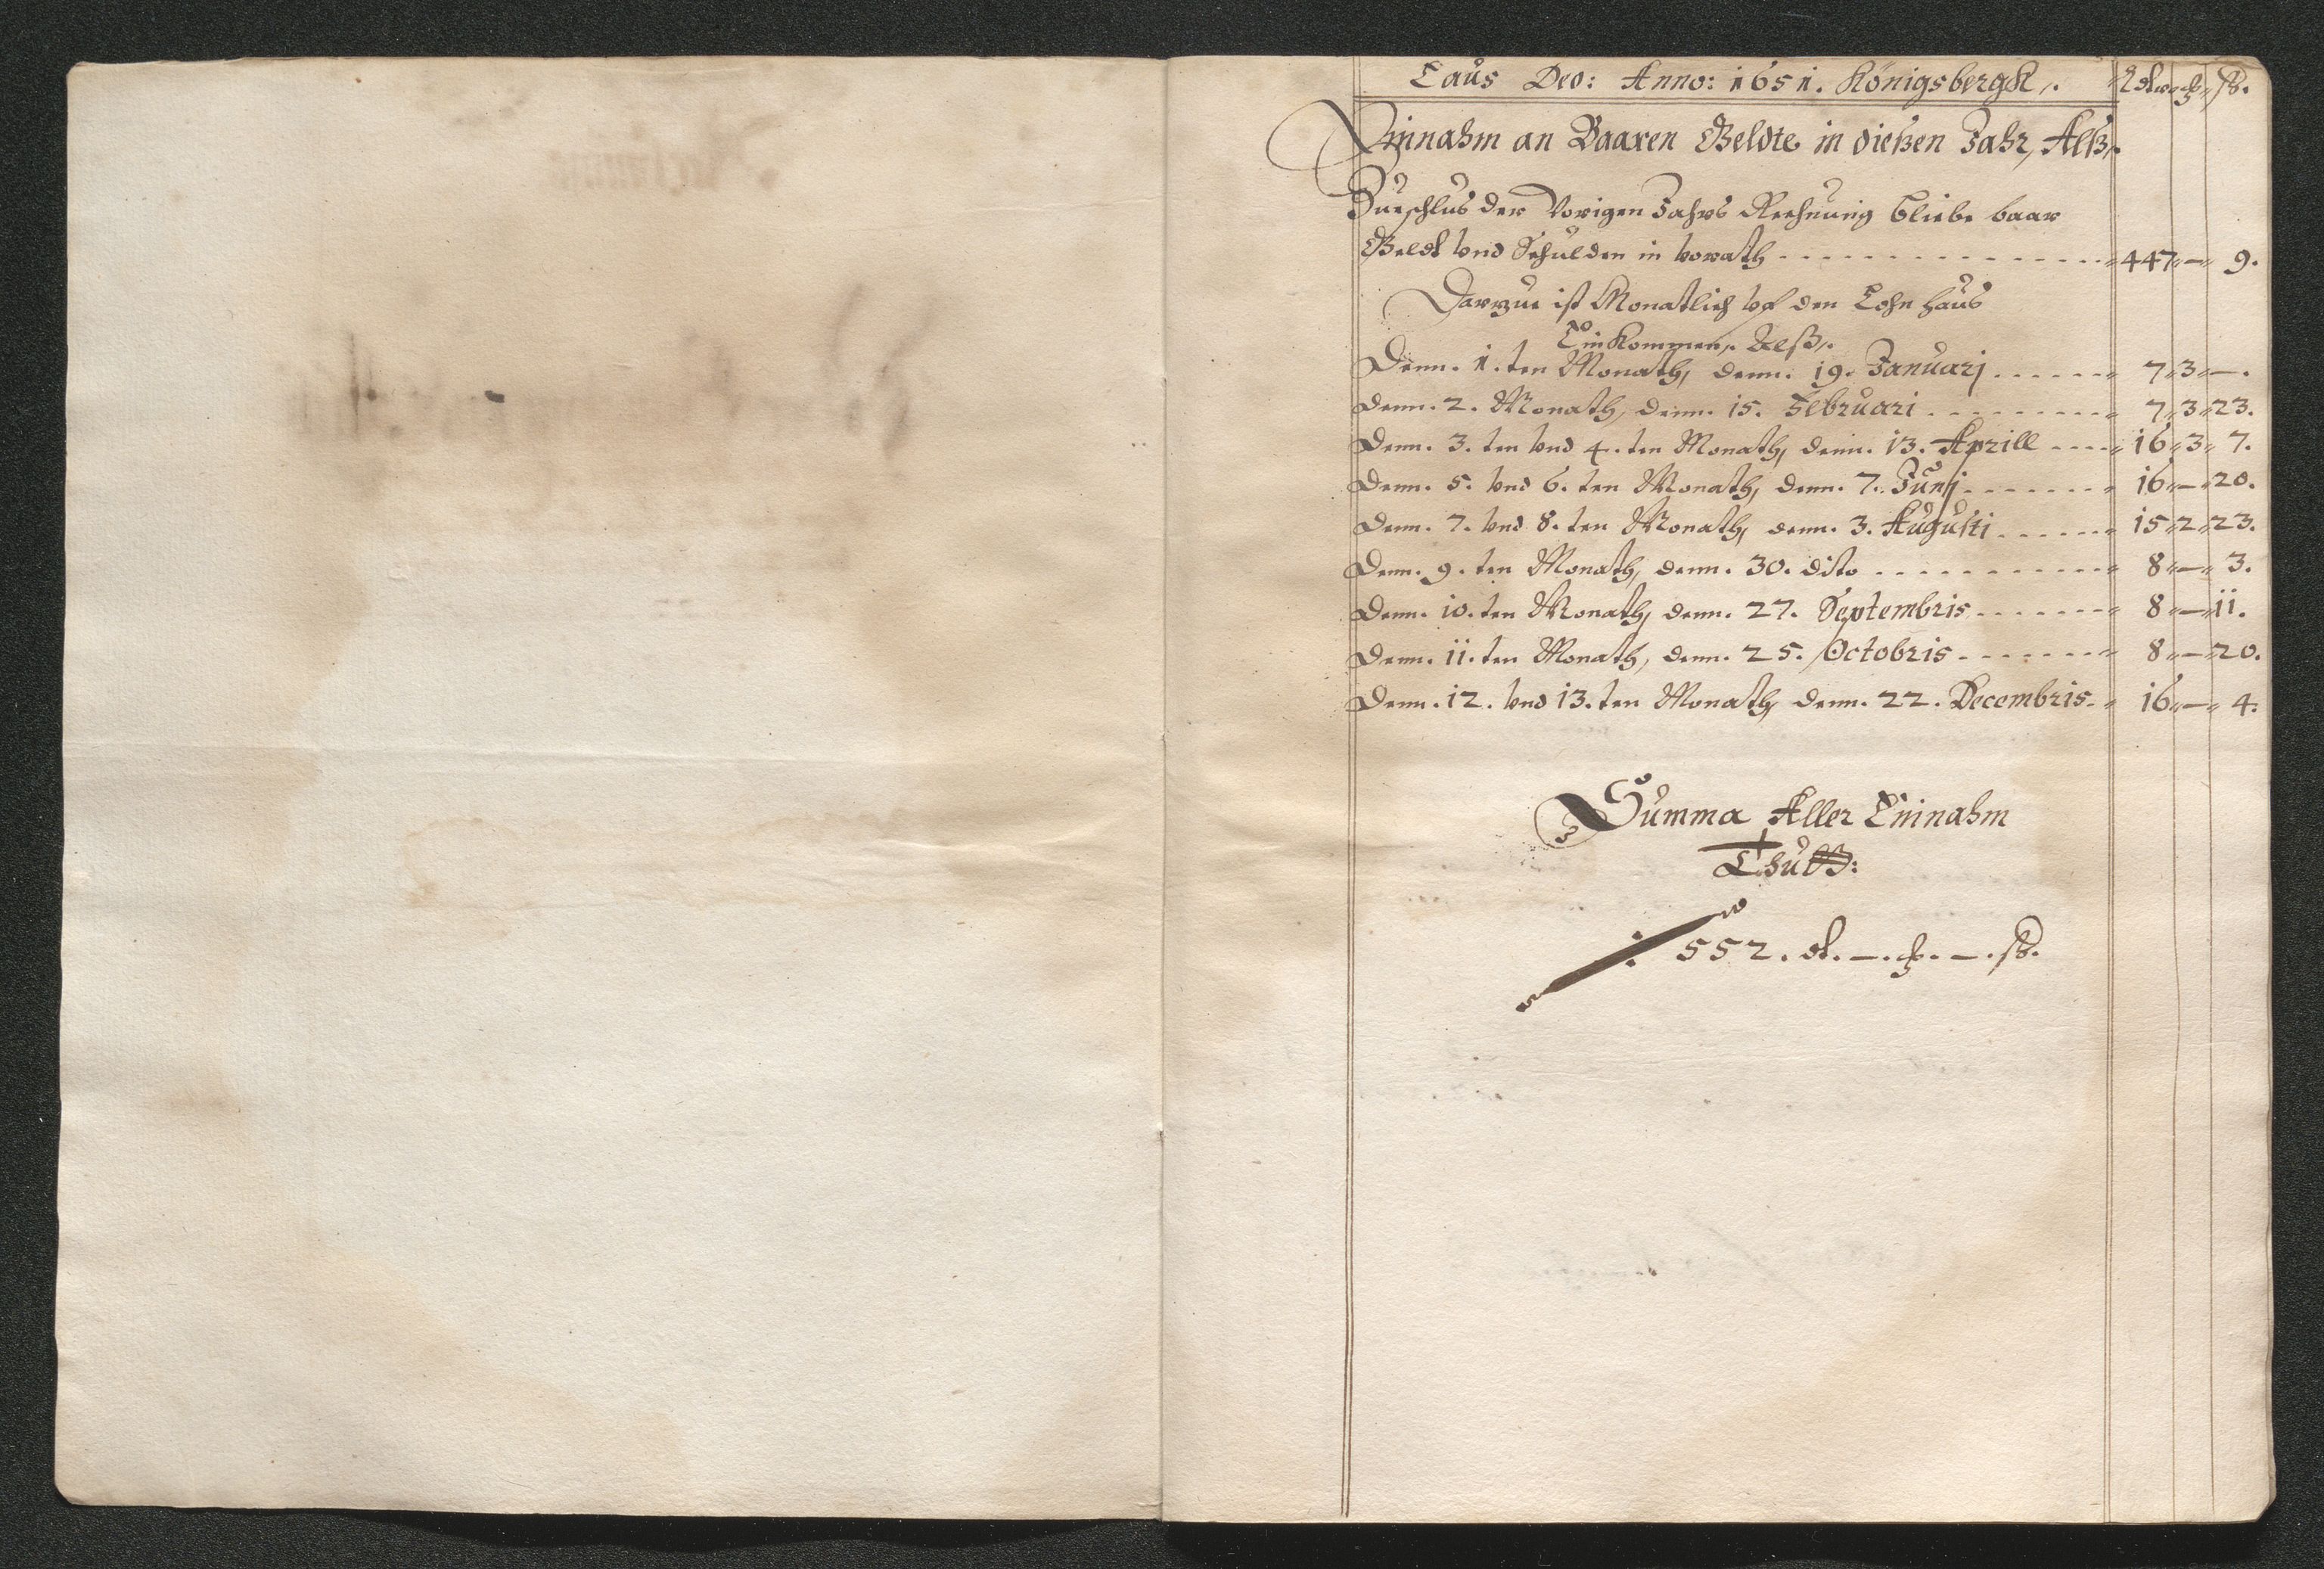 Laus Deo: Anno: 1651. Königsbergk. Rdlr ß.
Einnahm an Baaren Geldte in dießen Jahr, Alß.
Zue schlus der Vorigen Jahrs Rechnung bliebe baar
Geldt vnd Schulden in vorath 447 — 9.
Darzue ist Monatlich vf den Zehn haus
Einkommen, Alß.
Denn. 1. ten Monath, denn. 19. Januarj 7 3 —.
Denn. 2. Monath, denn. 15. Februari 7 3 23.
Denn. 3. ten vnd 4. ten Monath, denn. 13. Aprill 16 3 7.
Denn. 5. vnd 6. ten Monath, denn. 7. Junj 16 — 20.
Denn. 7. vnd 8. ten Monath, denn. 3. Augusti 15 2 23.
Denn. 9. ten Monath, denn. 30. dito 8 — 3.
Denn. 10. ten Monath, denn. 27. Septembris 8 — 11.
Denn. 11. ten Monath, denn. 25. Octobris 8 — 20.
Denn. 12. vnd 13. ten Monath, denn. 22. Decembris 16 — 4.
Summa Aller Einnahm
Thutt:
552. — . — . ß.